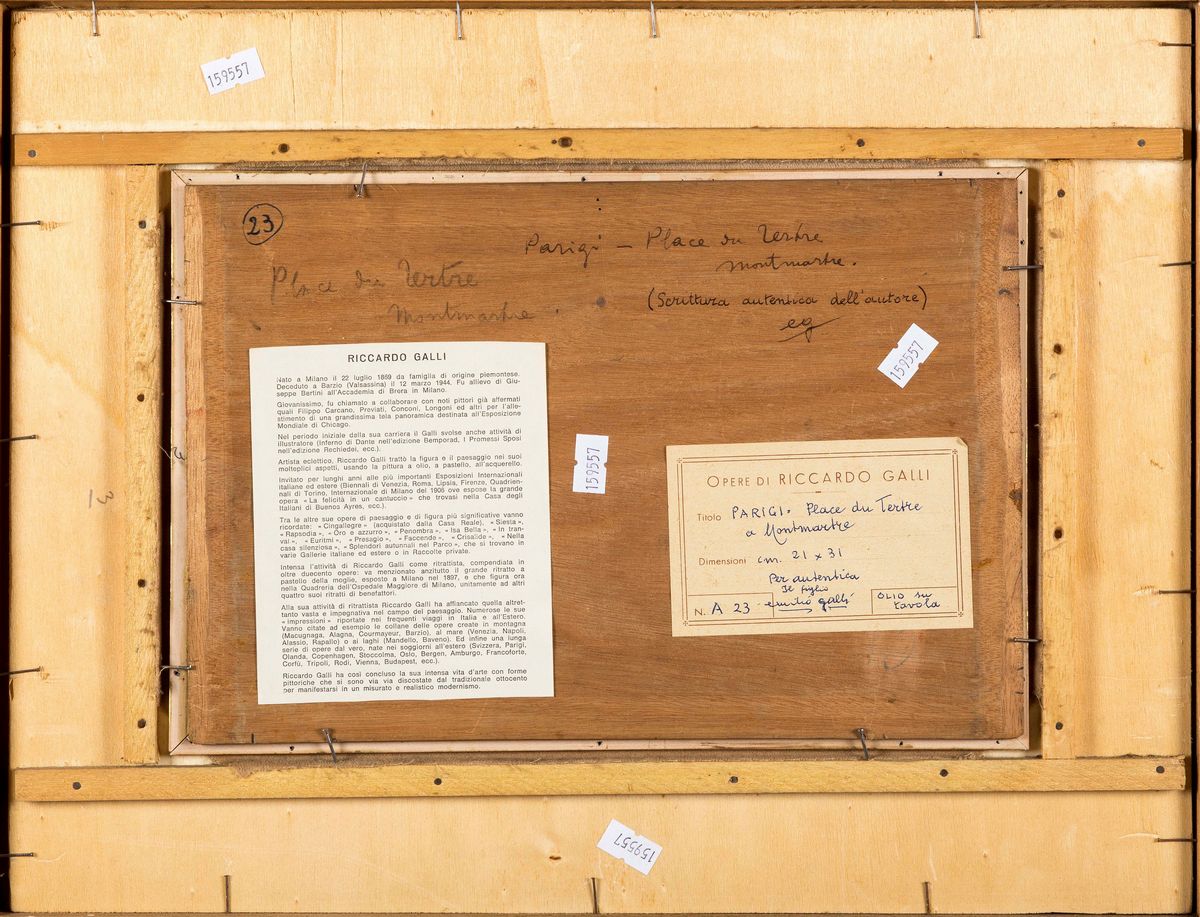 159557
23
Parigi – Place du Tertre
Montmartre.
Place du Tertre
Montmartre.
(Scrittura autentica dell'autore)
eg
159557
RICCARDO GALLI
Nato a Milano il 22 luglio 1869 da famiglia di origine piemontese.
Deceduto a Barzio (Valsassina) il 12 marzo 1944. Fu allievo di Giu-
seppe Bertini all'Accademia di Brera in Milano.
Giovanissimo, fu chiamato a collaborare con noti pittori già affermati
quali Filippo Carcano, Previati, Conconi, Longoni ed altri per l'alle-
stimento di una grandissima tela panoramica destinata all'Esposizione
Mondiale di Chicago.
Nel periodo iniziale della sua carriera il Galli svolse anche attività di
illustratore (Inferno di Dante nell'edizione Bemporad, I Promessi Sposi
nell'edizione Rechiedei, ecc.).
Artista eclettico, Riccardo Galli trattò la figura e il paesaggio nei suoi
molteplici aspetti, usando la pittura a olio, a pastello, all'acquerello.
Invitato per lunghi anni alle più importanti Esposizioni Internazionali
italiane ed estere (Biennali di Venezia, Roma, Lipsia, Firenze, Quadrien-
nali di Torino, Internazionale di Milano del 1906 ove espose la grande
opera « La felicità in un cantuccio » che trovasi nella Casa degli
Italiani di Buenos Ayres, ecc.).
Tra le altre sue opere di paesaggio e di figura più significative vanno
ricordate: « Cingallegre » (acquistato dalla Casa Reale), « Siesta »,
« Rapsodia », « Oro e azzurro », « Penombra », « Isa Bella », « In tran-
vai », « Euritmi », « Presagio », « Faccende », « Crisalide », « Nella
casa silenziosa », « Splendori autunnali nel Parco », che si trovano in
varie Gallerie italiane ed estere o in Raccolte private.
Intensa l'attività di Riccardo Galli come ritrattista, compendiata in
oltre duecento opere: va menzionato anzitutto il grande ritratto a
pastello della moglie, esposto a Milano nel 1897, e che figura ora
nella Quadreria dell'Ospedale Maggiore di Milano, unitamente ad altri
quattro suoi ritratti di benefattori.
Alla sua attività di ritrattista Riccardo Galli ha affiancato quella altret-
tanto vasta e impegnativa nel campo del paesaggio. Numerose le sue
« impressioni » riportate nei frequenti viaggi in Italia e all'Estero.
Vanno citate ad esempio le collane delle opere create in montagna
(Macugnaga, Alagna, Courmayeur, Barzio), al mare (Venezia, Napoli,
Alassio, Rapallo) o ai laghi (Mandello, Baveno). Ed infine una lunga
serie di opere dal vero, nate nei soggiorni all'estero (Svizzera, Parigi,
Olanda, Copenhagen, Stoccolma, Oslo, Bergen, Amburgo, Francoforte,
Corfù, Tripoli, Rodi, Vienna, Budapest, ecc.).
Riccardo Galli ha così concluso la sua intensa vita d'arte con forme
pittoriche che si sono via via discostate dal tradizionale ottocento
per manifestarsi in un misurato e realistico modernismo.
159557
OPERE DI RICCARDO GALLI
Titolo PARIGI. Place du Tertre
a Montmartre
Dimensioni cm. 21 x 31
Per autentica
Il figlio
N. A 23 emilio galli
OLIO su
tavola
13
159557